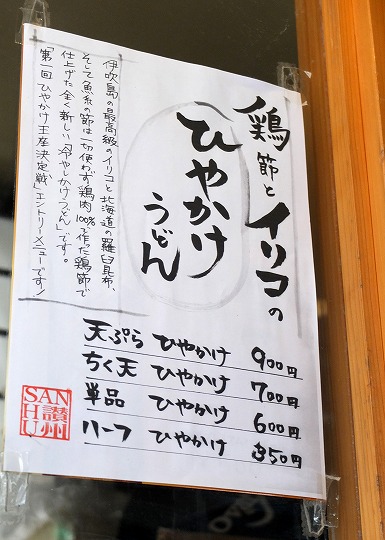 鶏節とイリコの
ひやかけ
うどん
伊吹島の最高級のイリコと北海道の羅臼昆布、
そして魚系の節は一切使わず鶏肉100%で作った鶏節で
仕上げた全く新しい「冷やしかけうどん」です。
「第一回ひやかけ王座決定戦」エントリーメニューです!
天ぷら ひやかけ 900円
ちく天 ひやかけ 700円
単品 ひやかけ 600円
ハーフ ひやかけ 350円
SAN
HU
讃州